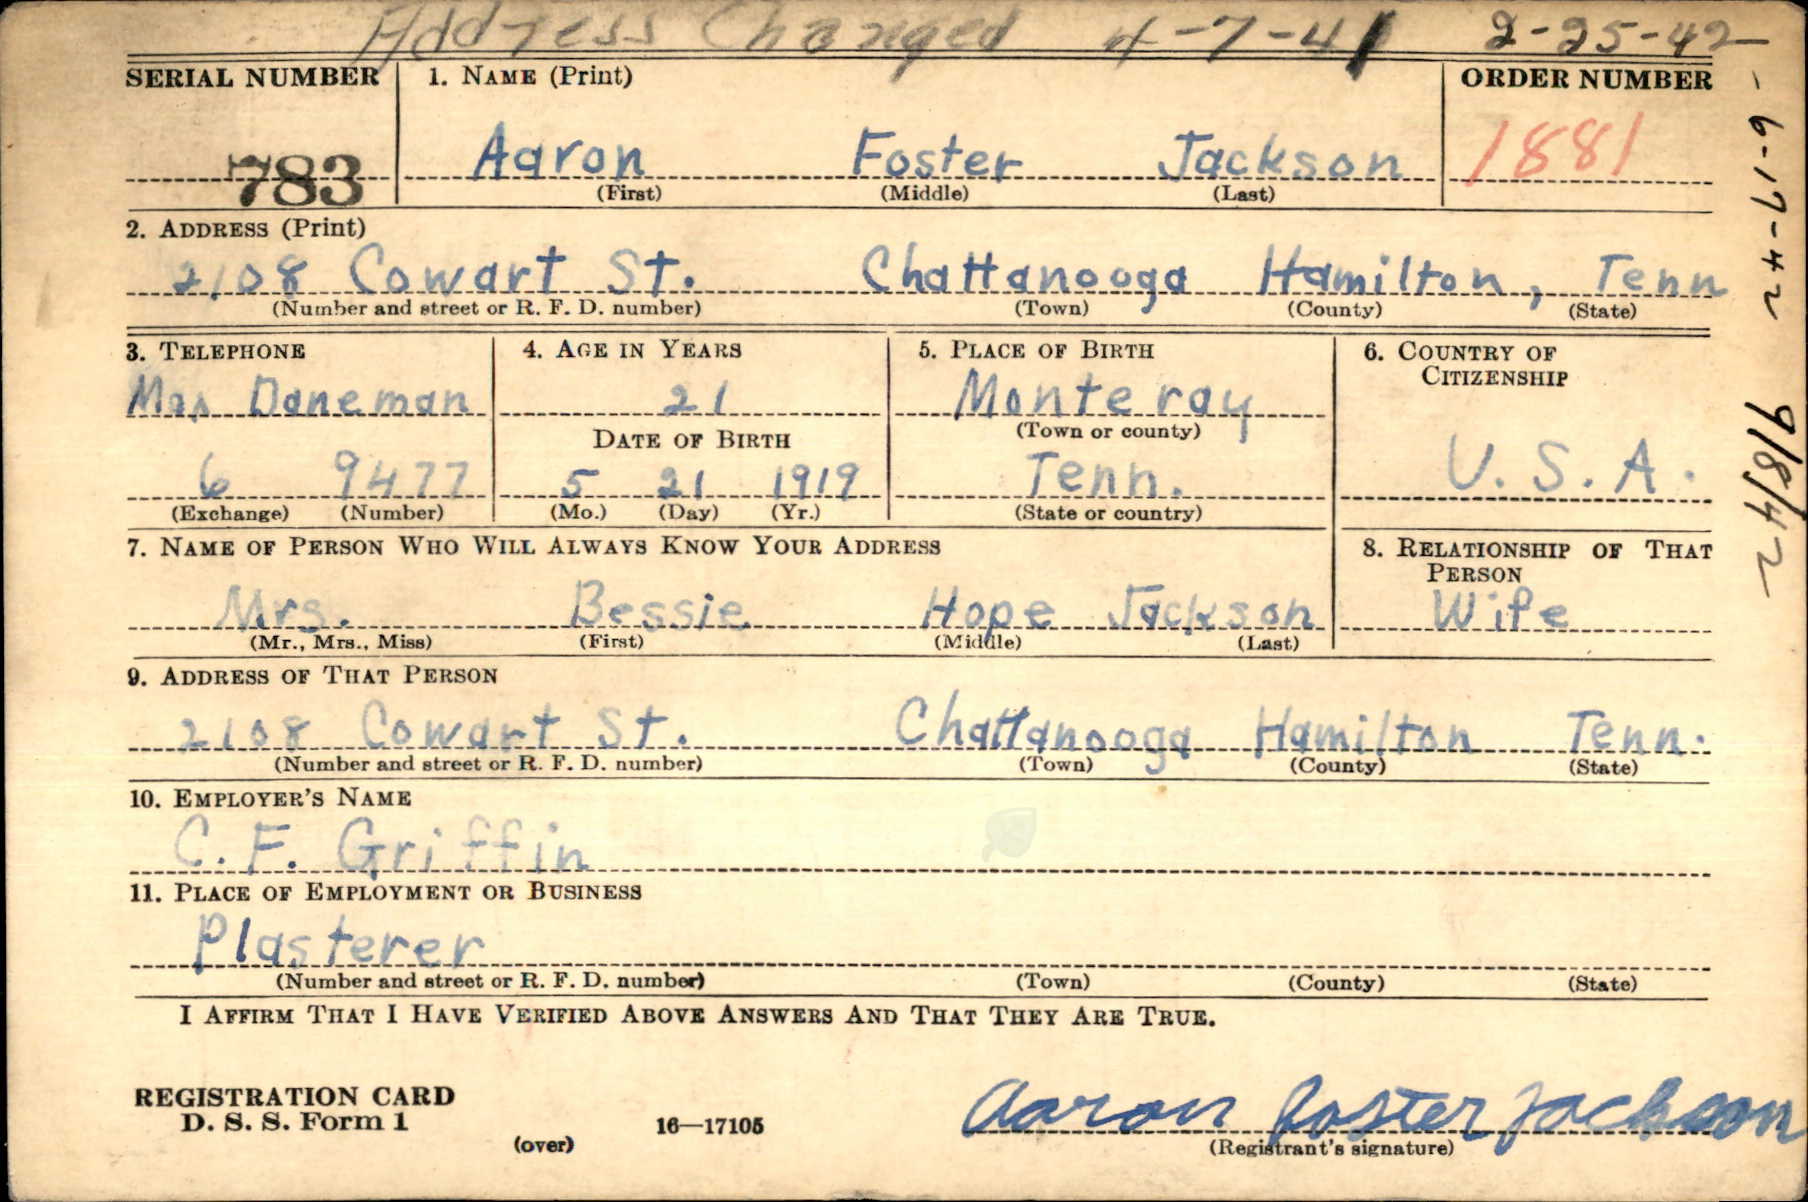 Address Changed 4-7-41 2-25-42
SERIAL NUMBER 1. NAME (Print) ORDER NUMBER
783 Aaron Foster Jackson 1881
(First) (Middle) (Last)
2. ADDRESS (Print)
2108 Cowart St. Chattanooga Hamilton, Tenn
(Number and street or R. F. D. number) (Town) (County) (State)
3. TELEPHONE 4. AGE IN YEARS 5. PLACE OF BIRTH 6. COUNTRY OF CITIZENSHIP
Daneman 21 Monteray
(Town or county)
DATE OF BIRTH
6 9477 5 21 1919 Tenn. U. S. A.
(Exchange) (Number) (Mo.) (Day) (Yr.) (State or country)
7. NAME OF PERSON WHO WILL ALWAYS KNOW YOUR ADDRESS 8. RELATIONSHIP OF THAT PERSON
Mrs. Bessie Hope Jackson Wife
(Mr., Mrs., Miss) (First) (Middle) (Last)
9. ADDRESS OF THAT PERSON
2108 Cowart St. Chattanooga Hamilton Tenn.
(Number and street or R. F. D. number) (Town) (County) (State)
10. EMPLOYER'S NAME
C. F. Griffin
11. PLACE OF EMPLOYMENT OR BUSINESS
Plasterer
(Number and street or R. F. D. number) (Town) (County) (State)
I AFFIRM THAT I HAVE VERIFIED ABOVE ANSWERS AND THAT THEY ARE TRUE.
REGISTRATION CARD
D. S. S. Form 1 16—17105 Aaron Foster Jackson
(over) (Registrant's signature)
- 6-17-42
9/8/42